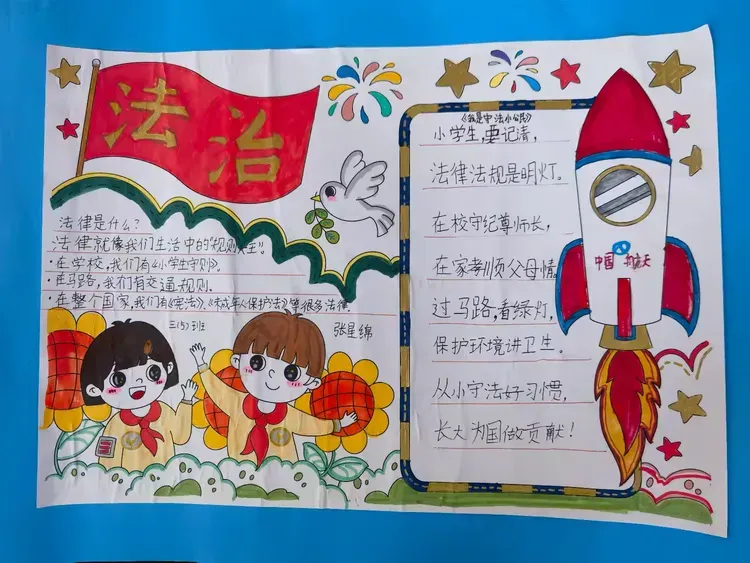 法治
法律是什么?
法律就像我们生活中的"规则大王"。
·在学校,我们有《小学生守则》。
·在马路,我们有交通规则.
·在整个国家,我们有《宪法》、《未成年人保护法》等很多法律.
三(5)班
张星绵
《我是守法小公民》
小学生要记清,
法律法规是明灯。
在校守纪尊师长,
在家孝顺父母情。
过马路,看绿灯,
保护环境讲卫生。
从小守法好习惯,
长大为国做贡献!
中国航天